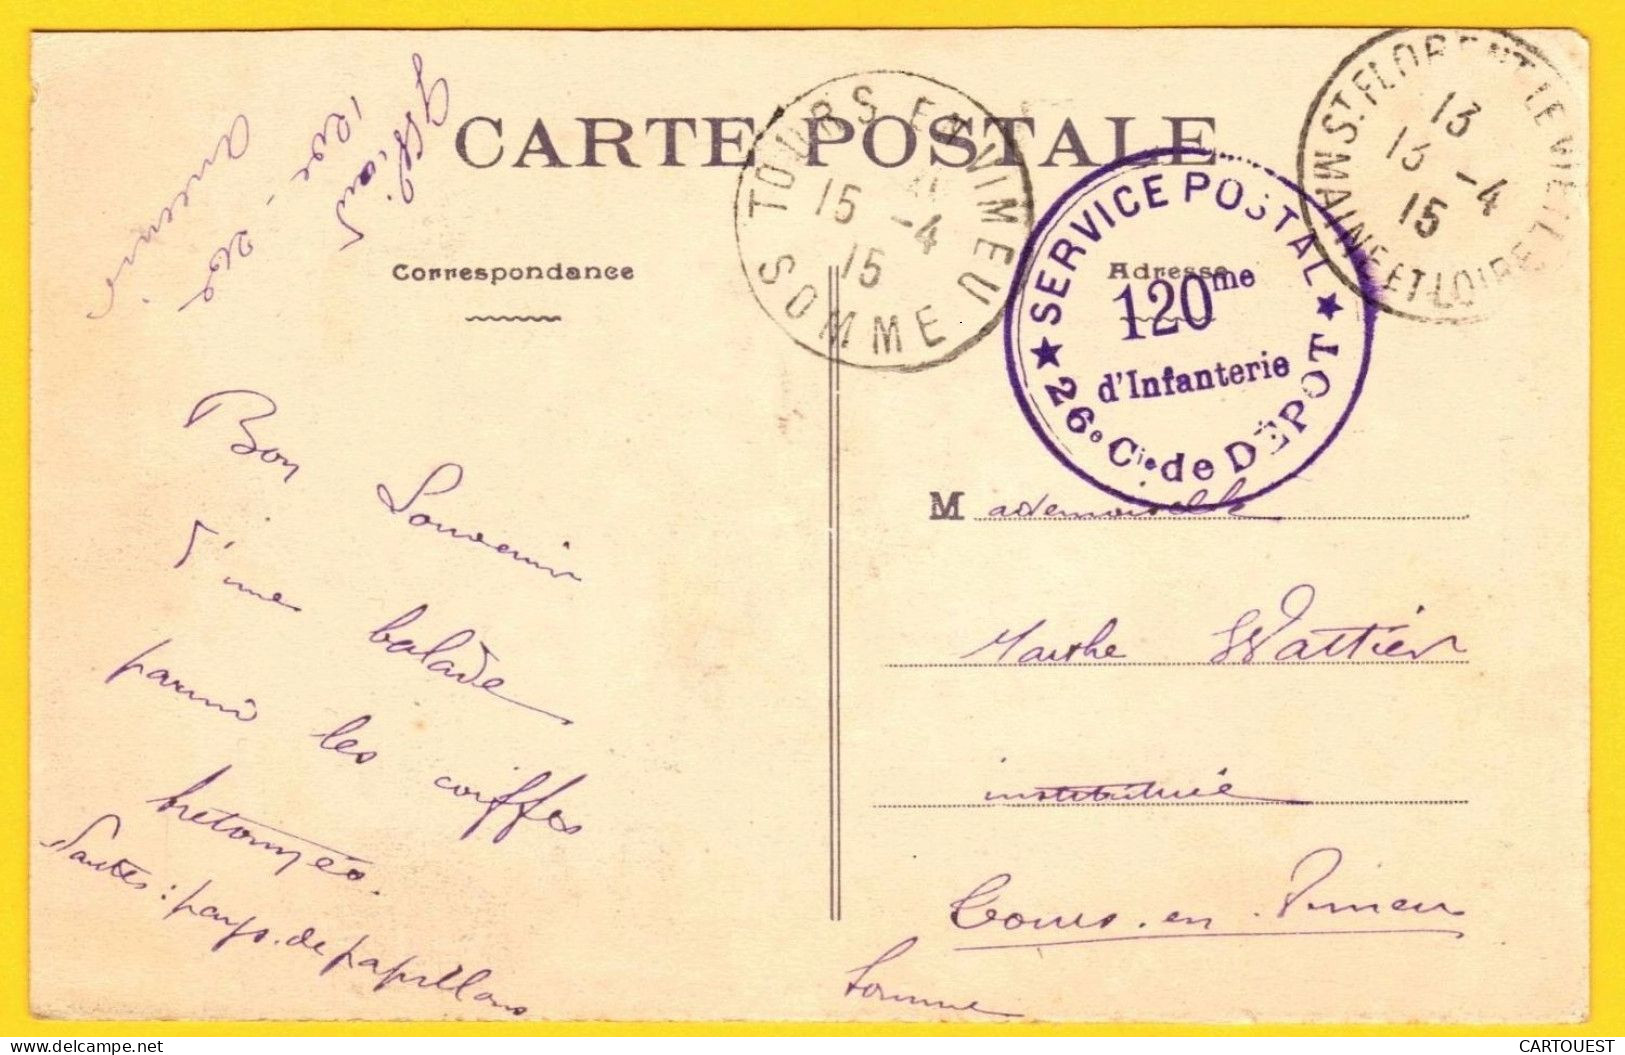 CARTE POSTALE
Correspondance
Adresse
TOURS EN VIMEU
15 -4
15
SOMME
SERVICE POSTAL
120me
d'Infanterie
26e Cie de DÉPOT
ST FLORENT LE VIEIL
13
13 -4
15
MAINE ET LOIRE
Bon
Souvenir
d'une balade
parmi les coiffes
bretonnes.
Nantes : pays de papillons
Mademoiselle
Marthe Wattier
institutrice
Tours-en-Vimeu
Somme
CARTOUEST